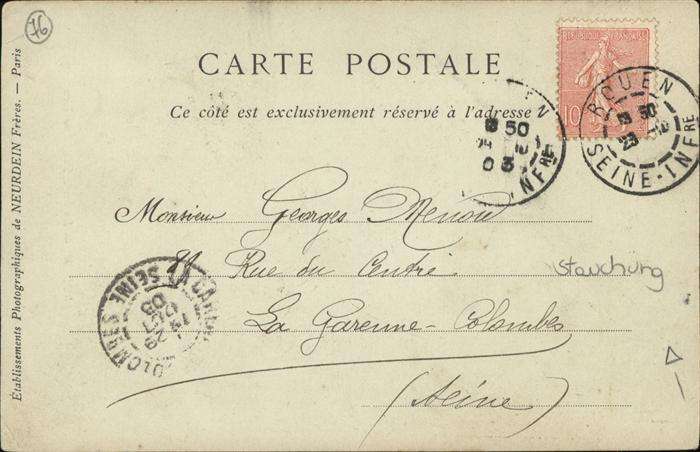 76
CARTE POSTALE
Ce côté est exclusivement réservé à l'adresse
REPUBLIQUE FRANÇAISE
10
ROUEN
SEINE-INFRE
50
23
EN
50
03
INFRE
Monsieur Georges Menou
Rue du Centre
La Garenne-Colombes
(Seine)
SEINE
29
03
Établissements Photographiques de NEURDEIN Frères. — Paris